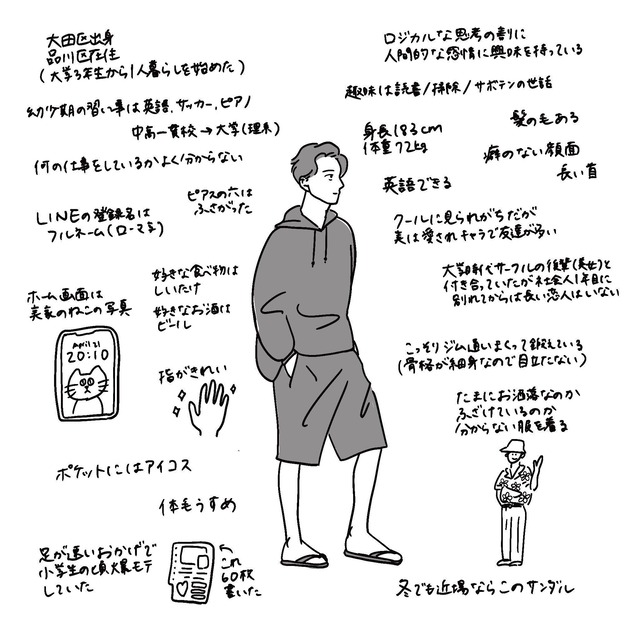 大田区出身
品川区在住
(大学3年生から1人暮らしを始めた)
幼少期の習い事は英語、サッカー、ピアノ
中高一貫校→大学(理系)
何の仕事をしているかよく分からない
ピアスの穴は
ふさがった
LINEの登録名は
フルネーム(ローマ字)
ホーム画面は
実家のねこの写真
April 21
20:10
好きな食べ物は
しいたけ
好きなお酒は
ビール
指がきれい
ポケットにはアイコス
体毛うすめ
足が速いおかげで
小学生の頃爆モテ
していた
これ
60枚
書いた
ロジカルな思考の割に
人間的な感情に興味を持っている
趣味は読書/掃除/サボテンの世話
身長183cm
体重72kg
髪の毛ある
癖のない顔面
長い首
英語できる
クールに見られがちだが
実は愛されキャラで友達が多い
大学時代サークルの後輩(美女)と
付き合っていたが社会人1年目に
別れてからは長い恋人はいない
こっそりジム通いまくって鍛えている
(骨格が細身なので目立たない)
たまにお洒落なのか
ふざけているのか
分からない服を着る
冬でも近場ならこのサンダル